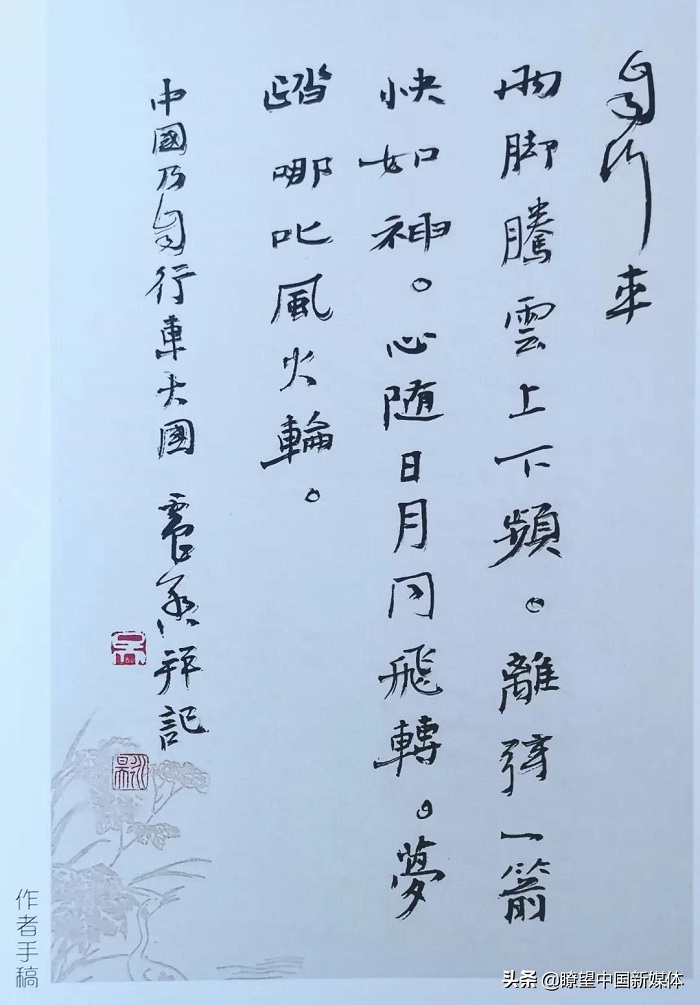 自行車
兩脚騰雲上下頻。離弦一箭
快如神。心随日月同飛轉。夢
踏哪叱風火輪。
中國乃自行車大國 祥記
作者手稿
头条 @瞭望中国新媒体